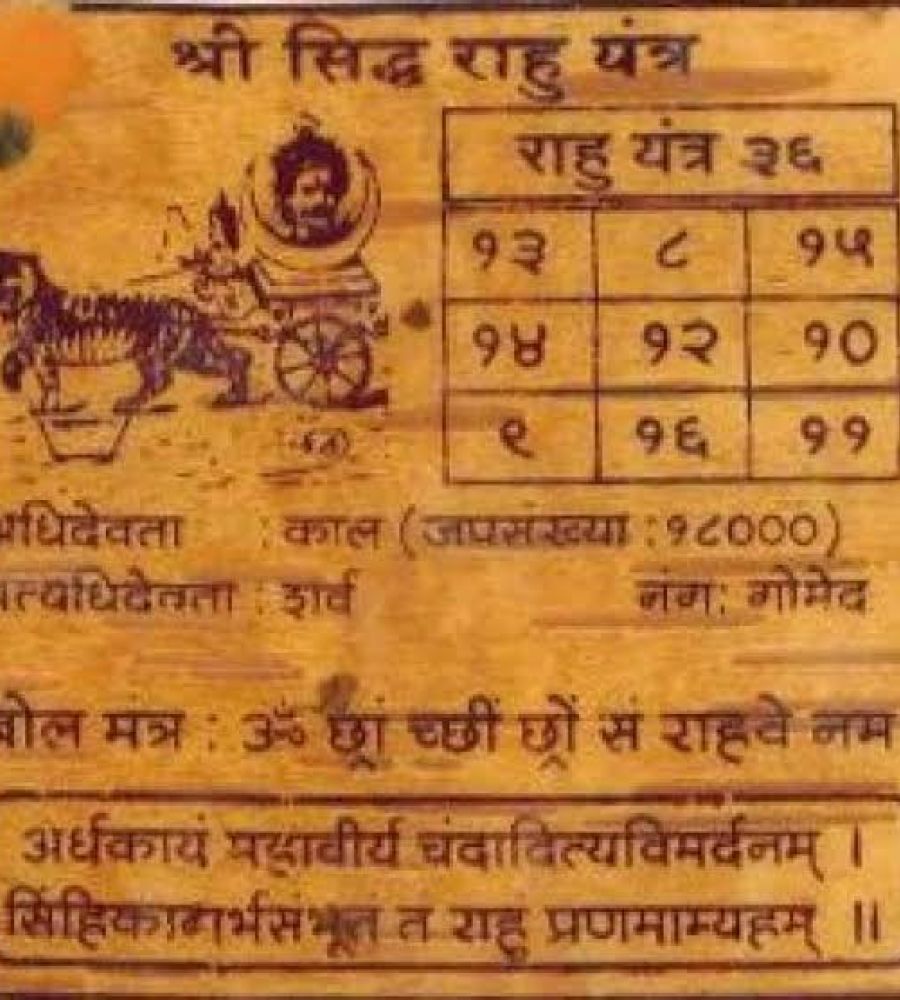 श्री सिद्ध राहु यंत्र
राहु यंत्र ३६
१३ ८ १५
१४ १२ १०
९ १६ ११
अधिदेवता : काल (जपसंख्या :१८०००)
प्रत्यधिदेवता : शर्व नंग: गोमेद
मंत्र : ॐ छ्रां च्छीं छ्रों सं राहवे नम
अर्धकायं महावीर्य चंदादित्यविमर्दनम् ।
सिंहिकागर्भसंभूत त राहु प्रणमाम्यहम् ॥